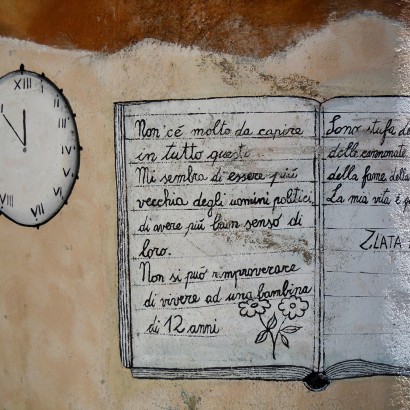 XIII I II III IV V VI VII VIII
Non c'é molto da capire
in tutto questo.
Mi sembra di essere piú
vecchia degli uomini politici,
di avere piú buon senso di
loro.
Non si puó rimproverare
di vivere ad una bambina
di 12 anni
Sono stufa de
delle cannonate
della fame della
La mia vita é
ZLATA